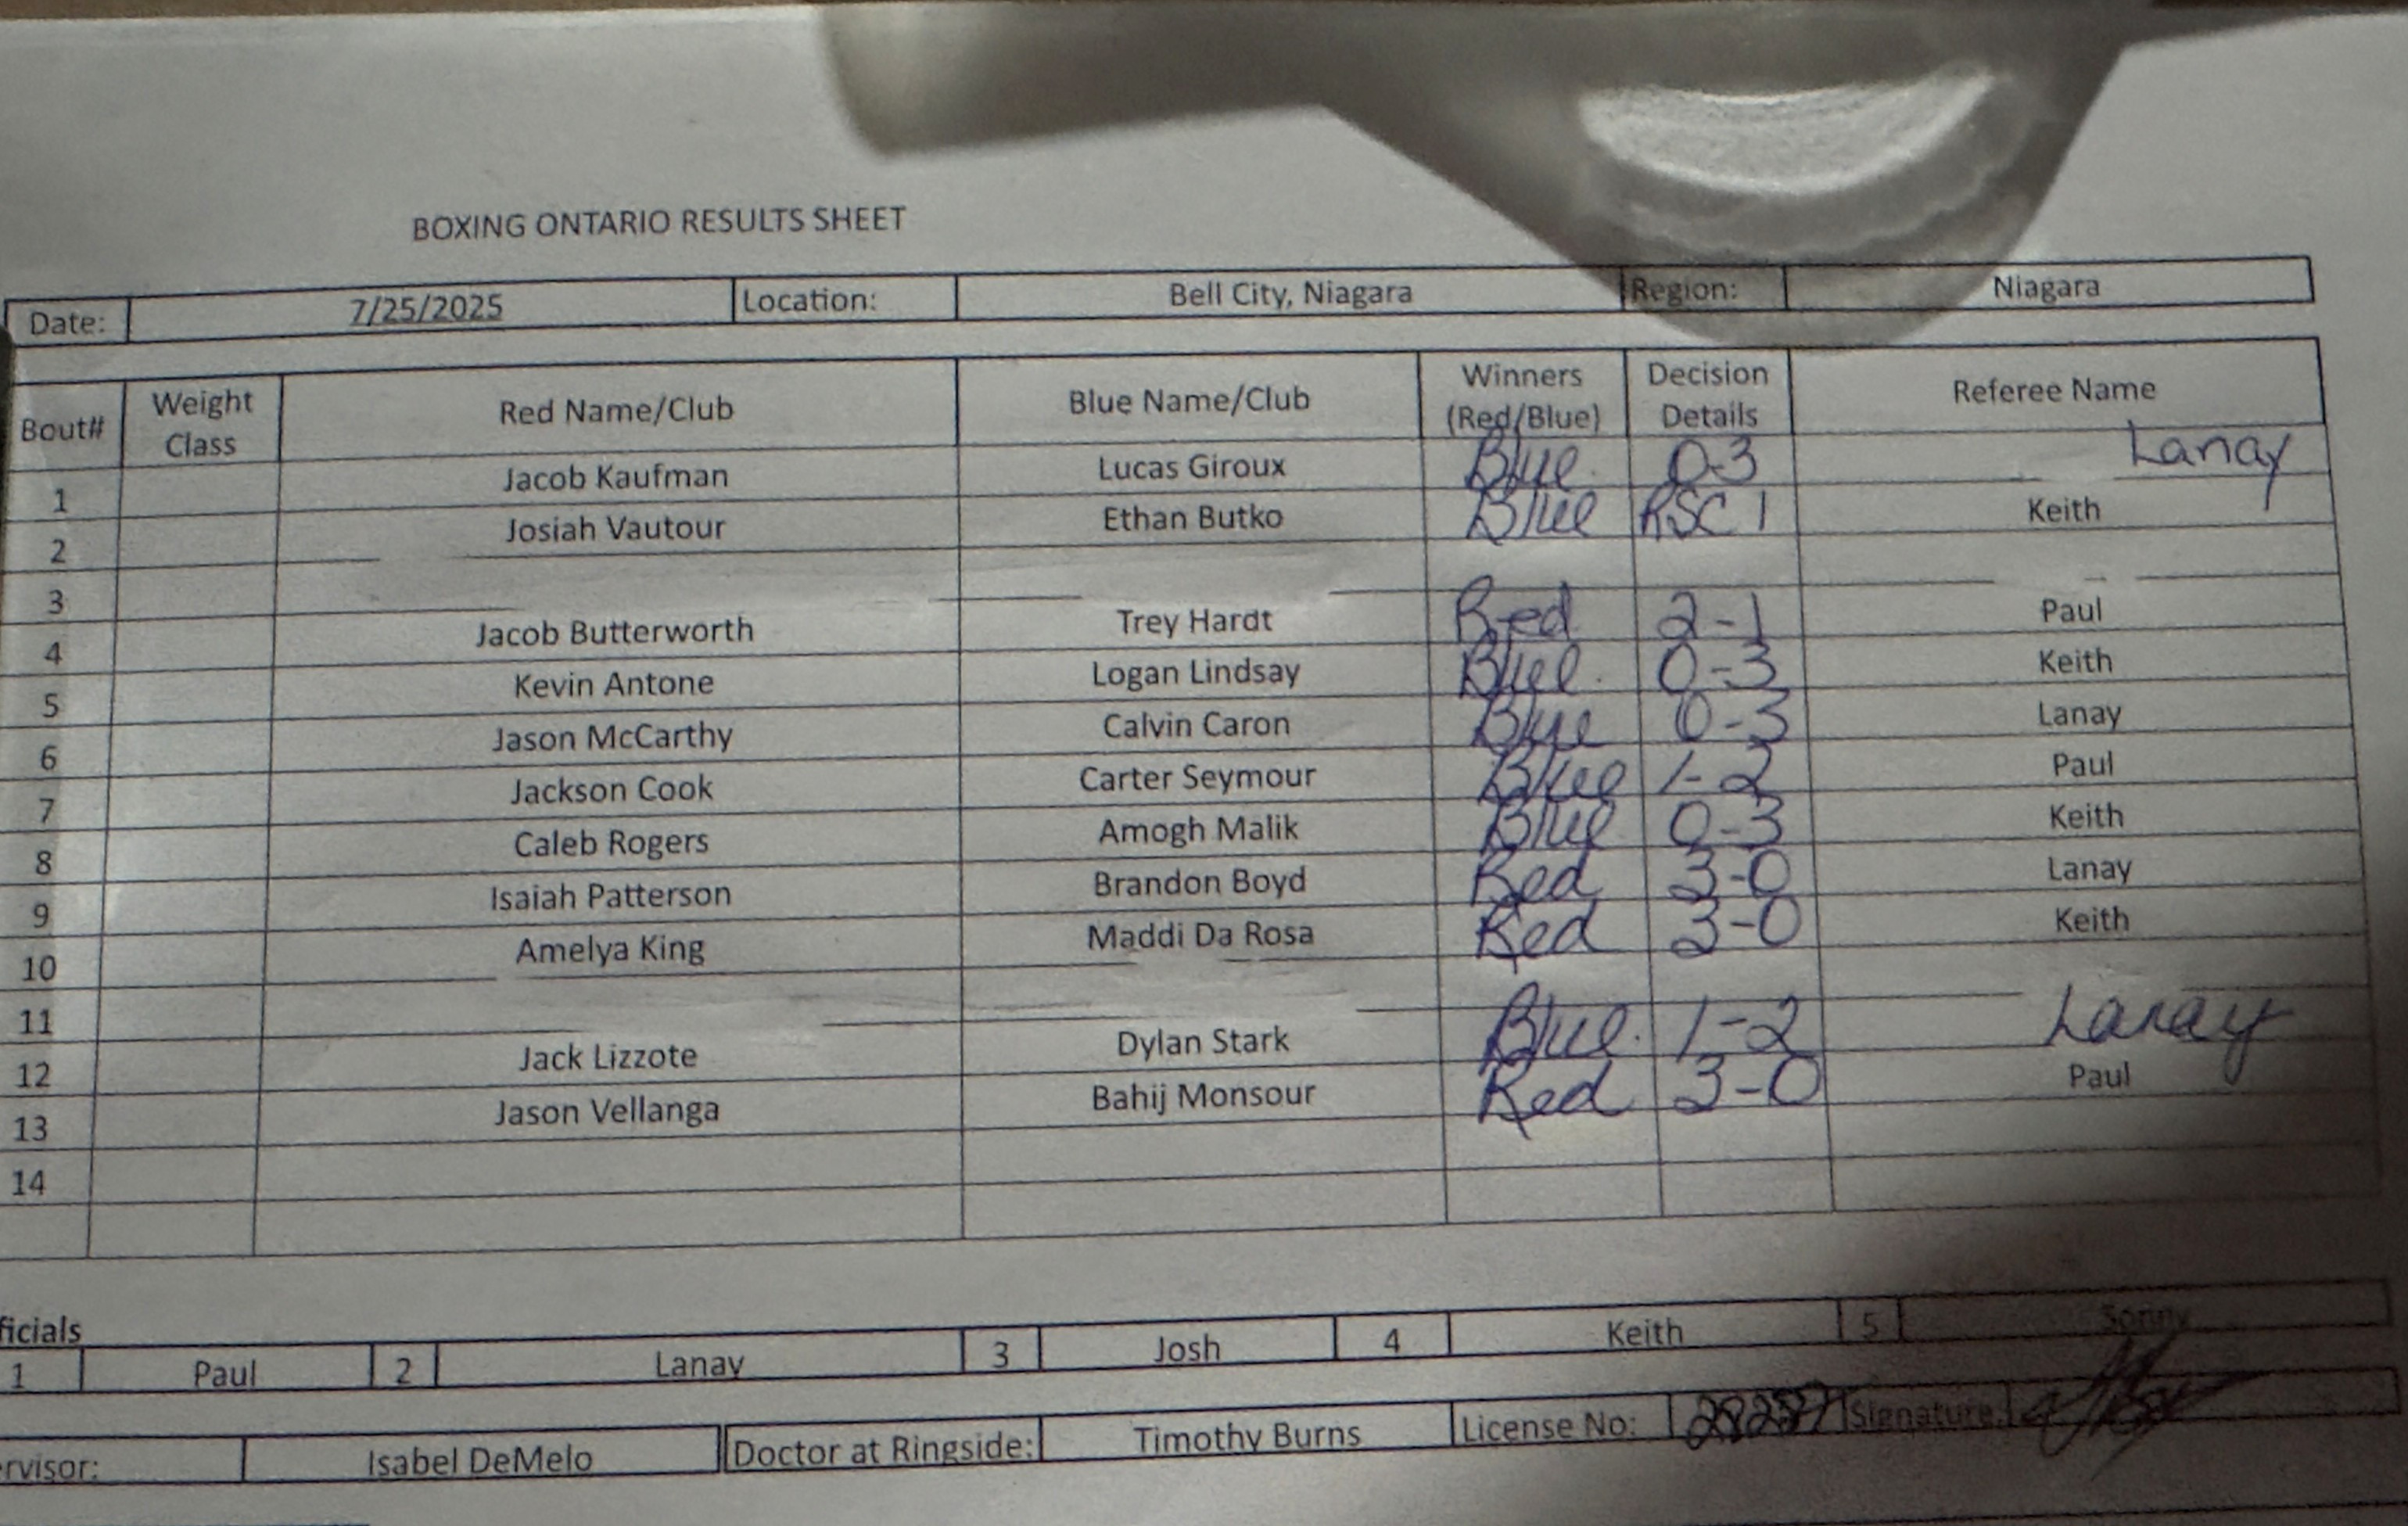 BOXING ONTARIO RESULTS SHEET
Date: 7/25/2025 Location: Bell City, Niagara Region: Niagara
Bout# Weight Class Red Name/Club Blue Name/Club Winners (Red/Blue) Decision Details Referee Name
1 Jacob Kaufman Lucas Giroux Blue 0-3 Lanay
2 Josiah Vautour Ethan Butko Blue RSC 1 Keith
3
4 Jacob Butterworth Trey Hardt Red 2-1 Paul
5 Kevin Antone Logan Lindsay Blue 0-3 Keith
6 Jason McCarthy Calvin Caron Blue 0-3 Lanay
7 Jackson Cook Carter Seymour Blue 1-2 Paul
8 Caleb Rogers Amogh Malik Blue 0-3 Keith
9 Isaiah Patterson Brandon Boyd Red 3-0 Lanay
10 Amelya King Maddi Da Rosa Red 3-0 Keith
11
12 Jack Lizzote Dylan Stark Blue 1-2 Lanay
13 Jason Vellanga Bahij Monsour Red 3-0 Paul
14
ficials
1 Paul 2 Lanay 3 Josh 4 Keith 5 Sonny
rvisor: Isabel DeMelo Doctor at Ringside: Timothy Burns License No: Signature: